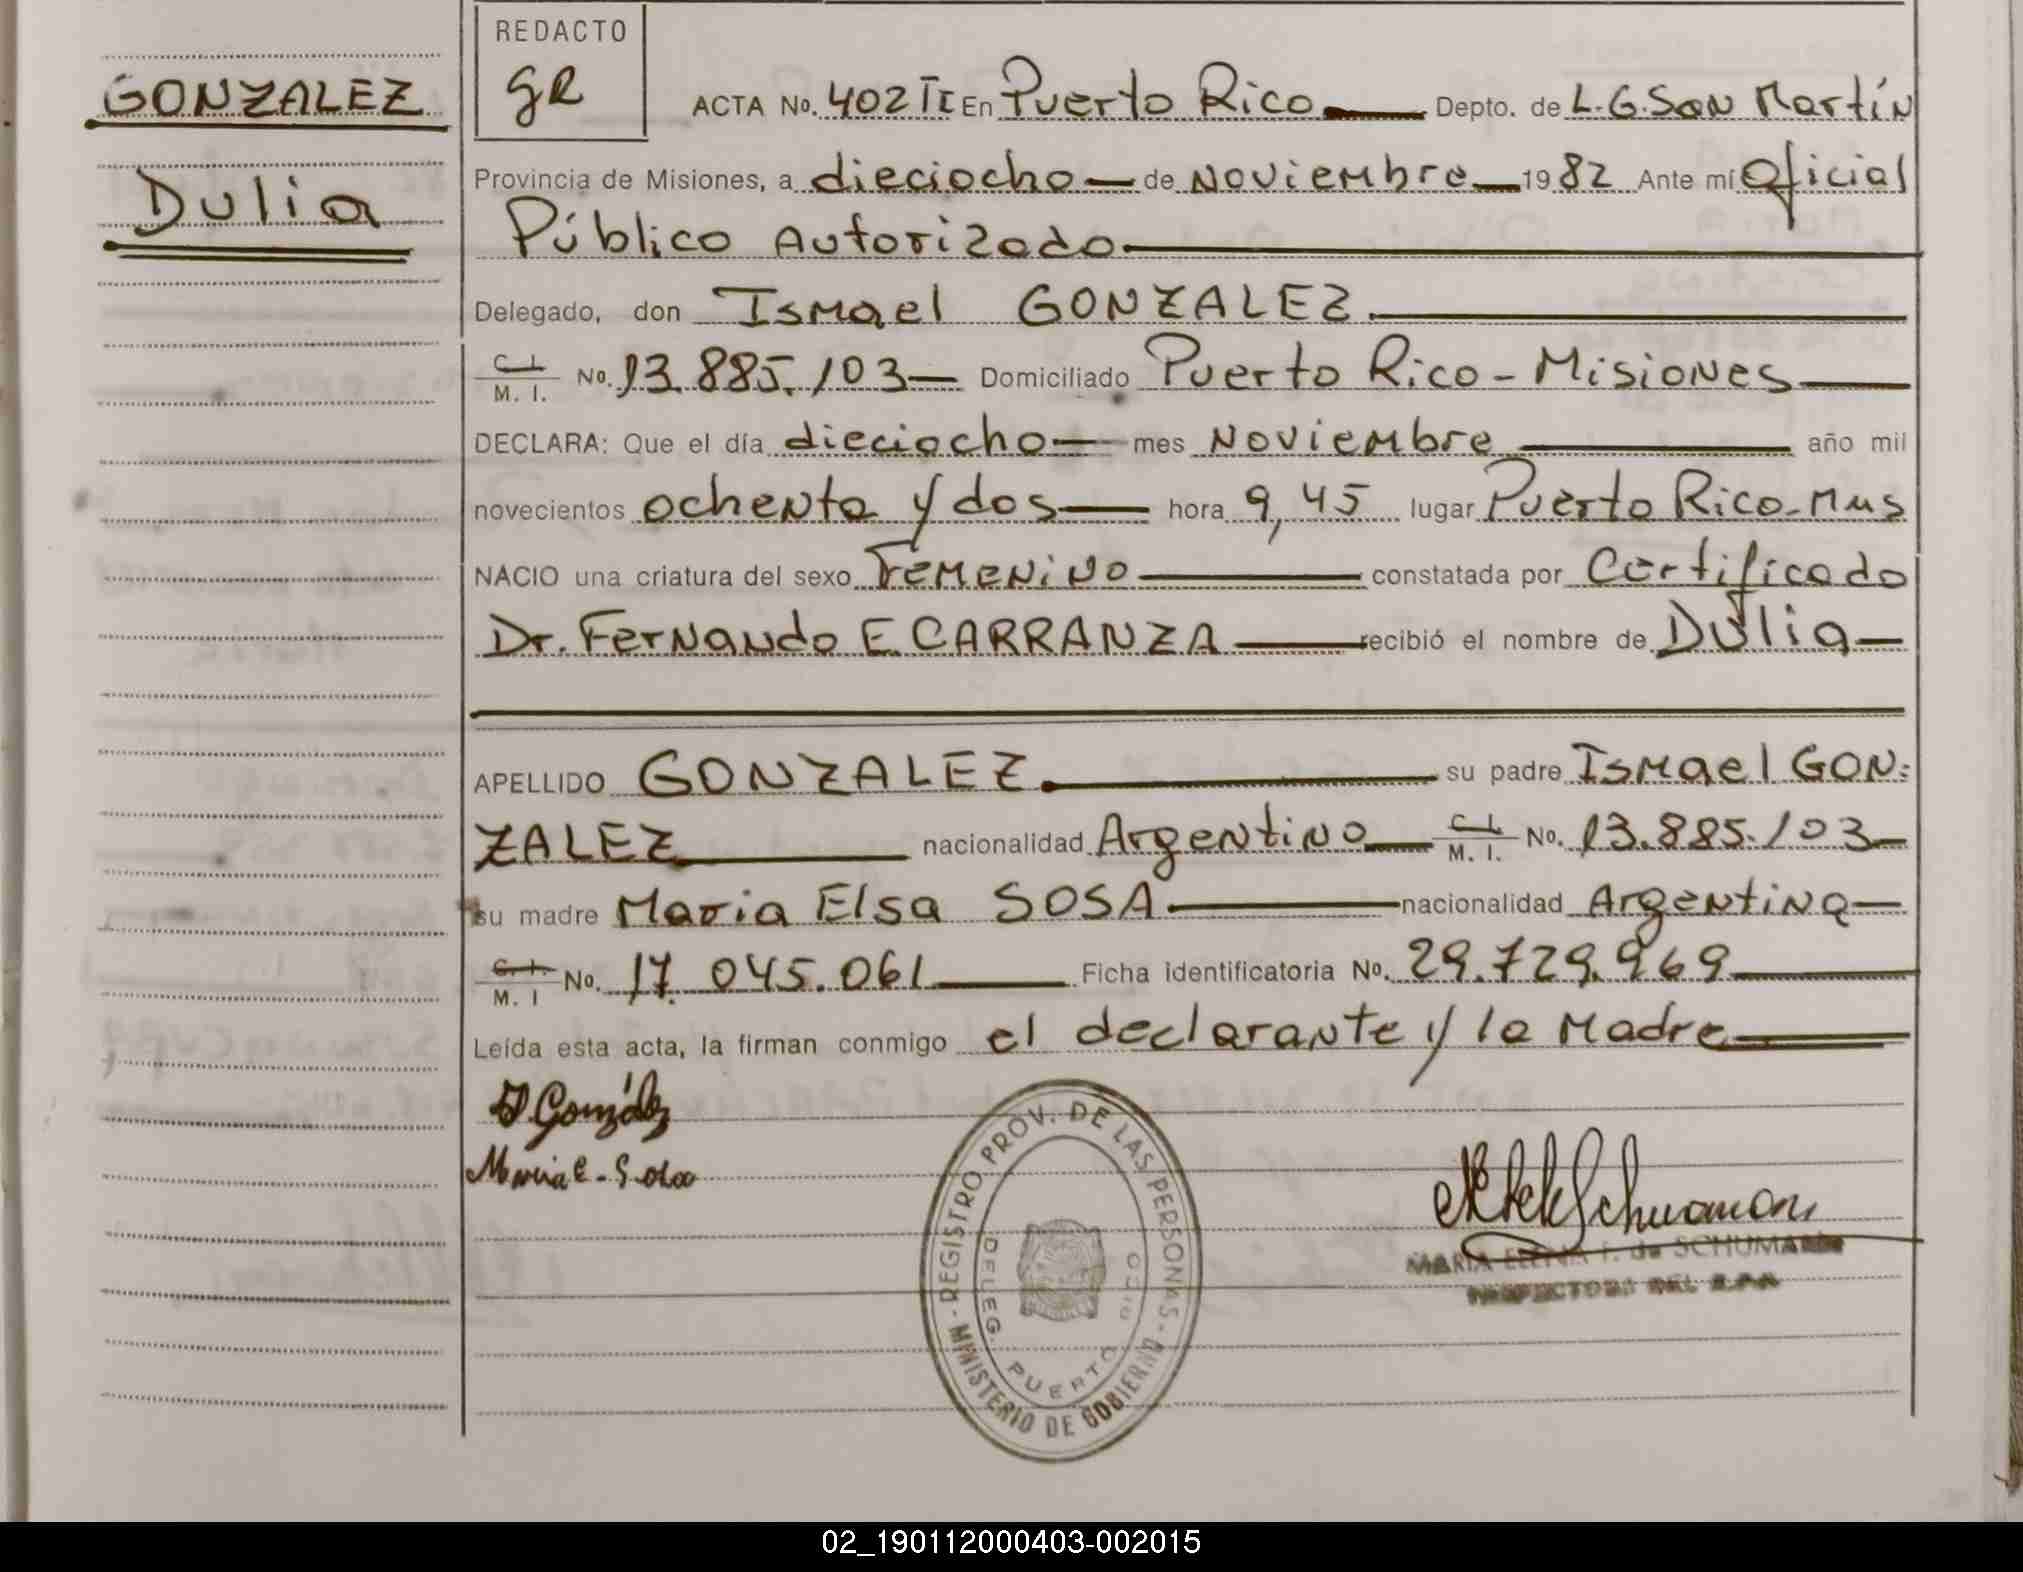 REDACTO
GR
GONZALEZ
Dulia
ACTA No. 402 TI En Puerto Rico Depto. de L.G.San Martín
Provincia de Misiones, a dieciocho de Noviembre 1982 Ante mí Oficial
Público Autorizado
Delegado, don Ismael GONZALEZ
C. I. / M. I. No. 13.885.103 Domiciliado Puerto Rico - Misiones
DECLARA: Que el día dieciocho mes Noviembre año mil
novecientos ochenta y dos hora 9,45 lugar Puerto Rico-Mns
NACIO una criatura del sexo Femenino constatada por Certificado
Dr. Fernando E. CARRANZA recibió el nombre de Dulia
APELLIDO GONZALEZ su padre Ismael GON=
ZALEZ nacionalidad Argentino C. I. / M. I. No. 13.885.103
su madre Maria Elsa SOSA nacionalidad Argentina
C. I. / M. I No. 17.045.061 Ficha identificatoria No. 29.729.969
Leída esta acta, la firman conmigo el declarante y la Madre
I. González
Maria E. Sosa
REGISTRO PROV. DE LAS PERSONAS - MINISTERIO DE GOBIERNO
DELEG. PUERTO
MARIA ELENA F. de SCHUMANN
INSPECTORA DEL R.P.P.
02_190112000403-002015